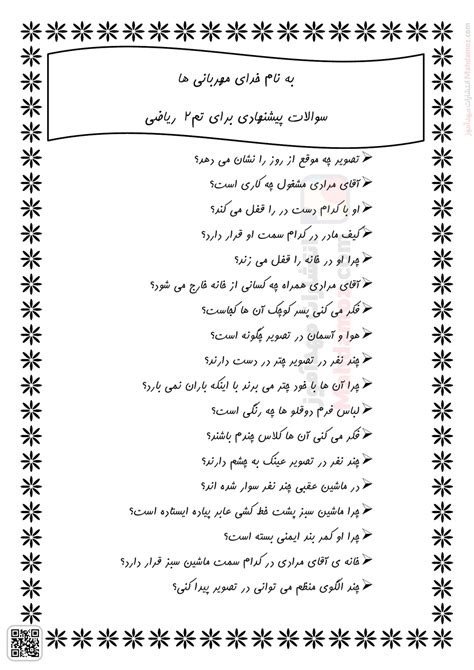 به نام خدای مهربانی ها
سوالات پیشنهادی برای تم۲ ریاضی
تصویر چه موقع از روز را نشان می دهد؟
آقای مرادی مشغول چه کاری است؟
او با کدام دست در را قفل می کند؟
کیف مادر در کدام سمت او قرار دارد؟
چرا او در خانه را قفل می زند؟
آقای مرادی همراه چه کسانی از خانه خارج می شود؟
فکر می کنی پسر کوچک آن ها کجاست؟
هوا و آسمان در تصویر چگونه است؟
چند نفر در تصویر چتر در دست دارند؟
چرا آن ها با خود چتر می برند با اینکه باران نمی بارد؟
لباس فرم دوقلو ها چه رنگی است؟
فکر می کنی آن ها کلاس چندم باشند؟
چند نفر در تصویر عینک به چشم دارند؟
در ماشین عقبی چند نفر سوار شده اند؟
چرا ماشین سبز پشت خط کشی عابر پیاده ایستاده است؟
چرا او کمر بند ایمنی بسته است؟
خانه ی آقای مرادی در کدام سمت ماشین سبز قرار دارد؟
چند الگوی منظم می توانی در تصویر پیدا کنی؟
انتشارات مهدآموز Mahdamoz.com
انتشارات مهدآموز
Mahdamoz.com